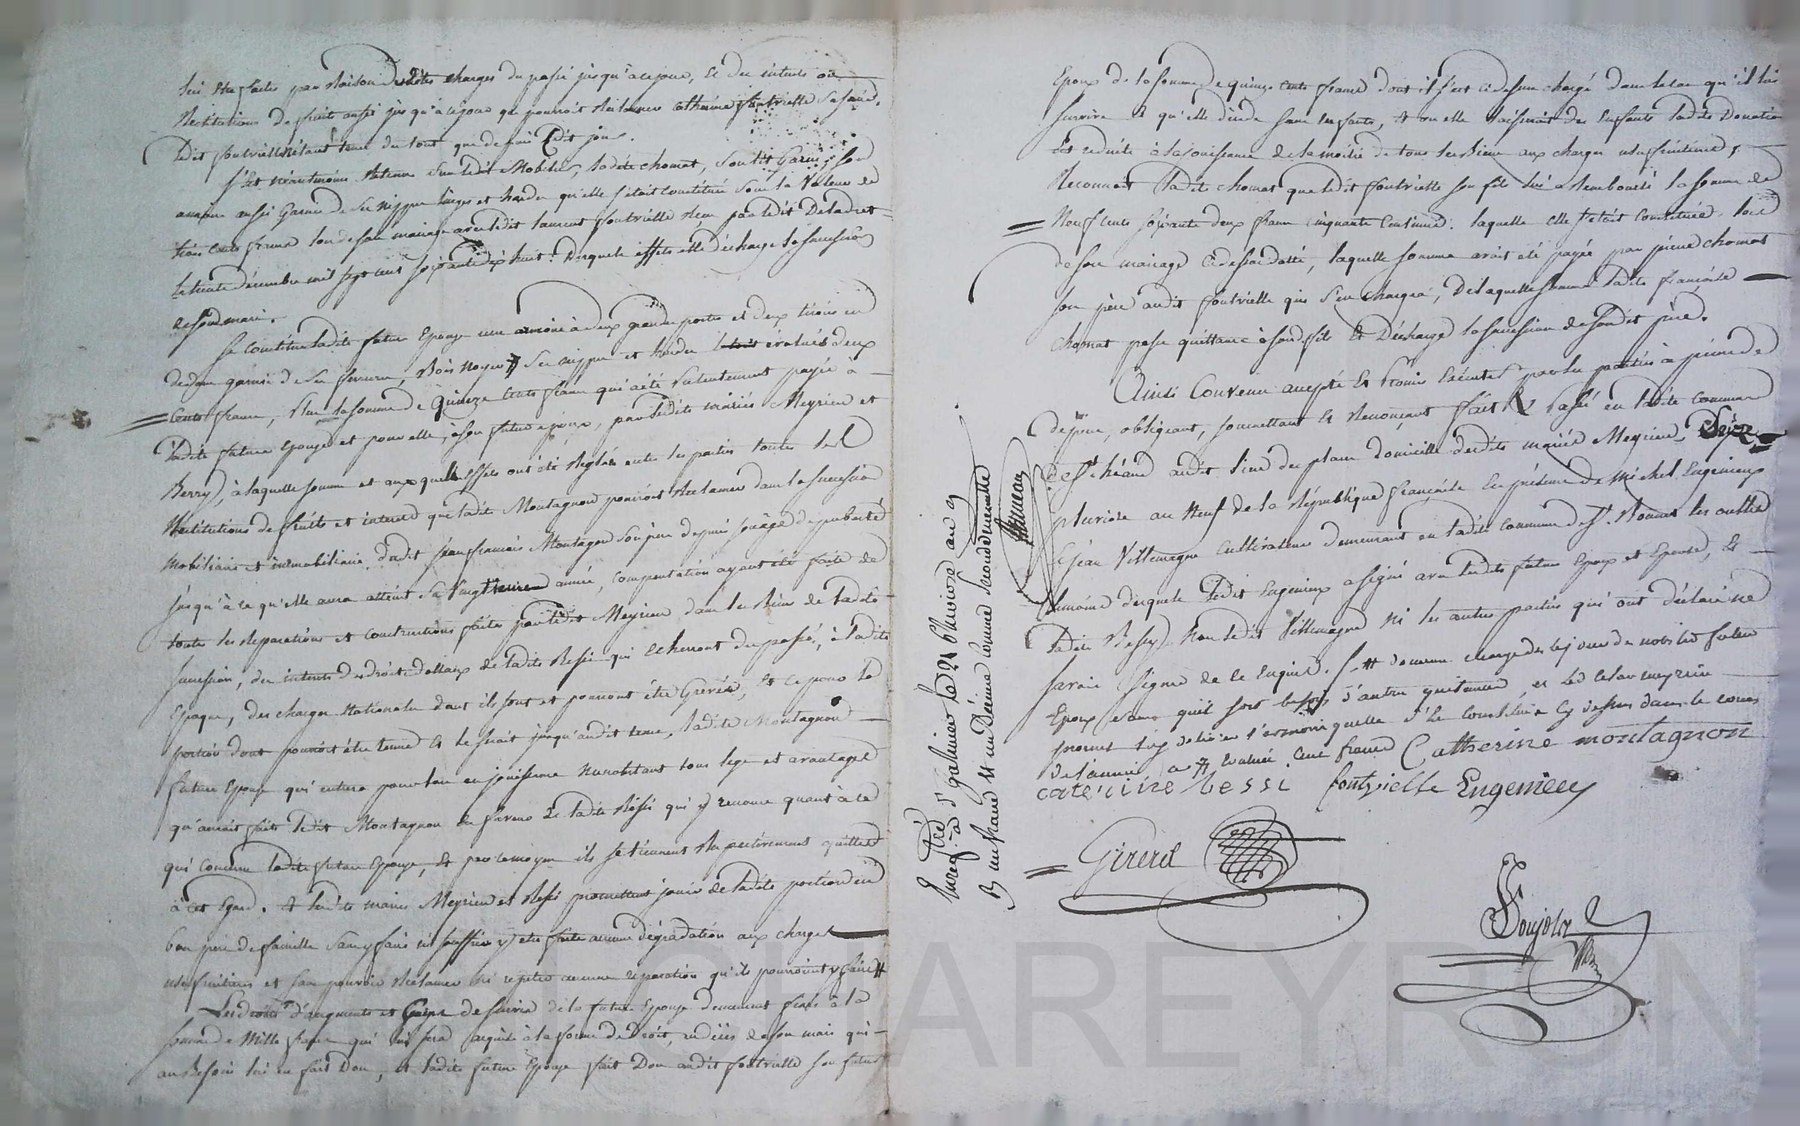 lui être faites par Raison desdites charges du passé jusqu'à ce jour, et des intérêts ou
Restitutions de fruits aussi jusqu'à ce jour que pourroit Réclamer Catherine fontvielle sa
ledit fontvielle étant tenu du tout que depuis ledit jour.
S'est néanmoins Retenu sur ledit Mobilier, ladite chomat, son lit Garni, son
armoire aussi Garnie de ses nippes linges et hardes qu'elle s'était Constitué sous la Valeur de
trois cents francs lors de son mariage avec ledit Laurent fontvielle Reçu par ledit
le trente décembre mil sept cent soixante dix huit. Desquels effets elle décharge la succession
de son mari.
Se Constitue ladite future Epouse une armoire à deux grandes portes et deux tiroirs en
dedans garnie de ses ferrures, Bois Noyer # ses nippes et hardes évalués deux
Cents francs, Plus la somme de Quinze Cents francs qui a été présentement payée à
ladite future Epouse et pour elle, à son futur epoux, par lesdits mariés Meyrieu et
Bessy, à laquelle somme et auxquels effets ont été Reglés entre les parties toutes les
Restitutions de fruits et interets que ladite Montagnon pourroit Réclamer dans la succession
Mobiliaire et immobiliaire dudit jean francois Montagnon son père depuis son âge de puberté
jusqu'à ce qu'elle aura atteint sa Vingt année, compensation ayant été faite de
toutes les réparations et constructions faites par ledit Meyrieu dans les Biens de ladite
succession, des interets des droits de ladite Bessi qui echerront du passé, à ladite
Epoque, des charges Nationales dont ils sont et pourront être Grevés, et ce pour la
portion dont pourroit être tenue et le seroit jusqu'audit tems, ladite Montagnon
future Epouse qui entrera pour lors en jouissance nonobstant tous legs et avantages
qu'auroit faits ledit Montagnon en faveur de ladite Bessi qui y renonce quant à ce
qui concerne ladite future Epouse, Et par ce moyen ils se tiennent Respectivement quittes
à cet Egard. Et lesdits mariés Meyrieu et Bessi promettent jouir de ladite portion en
bon père de famille sans y faire ni souffrir y être faite aucune dégradation aux charges
usufruitières et sans pouvoir Réclamer ni répéter aucune réparation qu'ils pourroient y faire #
Les droits d'augments et Gains de survie de la future Epouse demeurent fixés à la
somme de Mille francs qui lui sera acquise à la forme de Droit, au décès de son mari qui
au Besoin lui en fait Don, et ladite future Epouse fait Don audit fontvielle son futur
Epoux de la somme de quinze cents francs dont il s'est cidessus chargé dans le cas qu'il lui
survive et qu'elle décède sans enfants, et où elle laisseroit des Enfants ladite Donation
Est reduite à la jouissance de la moitié de tous ses Biens aux charges usufruitières,
Reconnoit ladite chomat que ledit fontvielle son fils lui a Remboursé la somme de
Neuf Cents soixante deux francs cinquante Centimes. laquelle elle s'était Constituée lors
de son mariage cidessus datté, laquelle somme avait été payée par pierre chomat
son père audit fontvielle qui s'en chargea, De laquelle somme ladite francoise
chomat passe quittance à son fils et Décharge la succession de sondit père.
Ainsi Convenu accepté et promis Exécuter par les parties à peine de
dépens, obligeant, soumettant et Renonçant, fait & Passé en ladite Commune
de St. héand audit lieu du plane domicile desdits mariés Meyrieu, Le Seize
pluviose an Neuf de la République francoise En présence de Michel Engenieux
et jean Villemagne cultivateurs demeurant en ladite commune de St. Bonnet les oules
témoins desquels ledit Engenieux a signé avec lesdits futurs Epoux et Epouse, et
ladite Bessy, Non ledit Villemagne Ni les autres parties qui ont déclaré ne
savoir signer de ce Enquis.
Epoux sans quil soit besoin d'autre quittance et led
promet luy délivrer l'armoire quelle s'est constituée Cy dessus dans le cours
de l'année, # Evaluée Cent francs Catherine montagnon
caterine bessi fontvielle Engenieux
Girerd
Enregistré à St Galmier le 21 Pluviose an 9